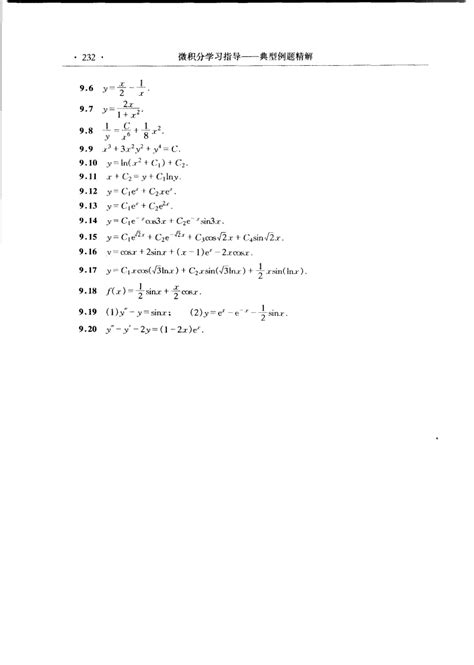 · 232 ·
微积分学习指导——典型例题精解
9.6 y=x/2-1/x.
9.7 y=2x/(1+x²).
9.8 1/y=C/x⁶+1/8 x².
9.9 x³+3x²y²+y⁴=C.
9.10 y=ln(x²+C₁)+C₂.
9.11 x+C₂=y+C₁lny.
9.12 y=C₁eˣ+C₂xeˣ.
9.13 y=C₁eˣ+C₂e²ˣ.
9.14 y=C₁e⁻ˣcos3x+C₂e⁻ˣsin3x.
9.15 y=C₁e^(√2x)+C₂e^(-√2x)+C₃cos√2x+C₄sin√2x.
9.16 y=cosx+2sinx+(x-1)eˣ-2xcosx.
9.17 y=C₁xcos(√3lnx)+C₂xsin(√3lnx)+1/2 xsin(lnx).
9.18 f(x)=1/2 sinx+x/2 cosx.
9.19 (1)y″-y=sinx; (2)y=eˣ-e⁻ˣ-1/2 sinx.
9.20 y″-y′-2y=(1-2x)eˣ.